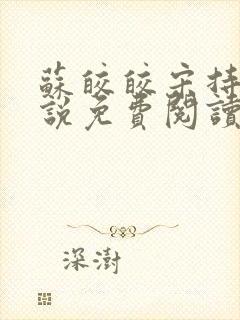 蘇皎皎宋持
說免費閱讀
深澍